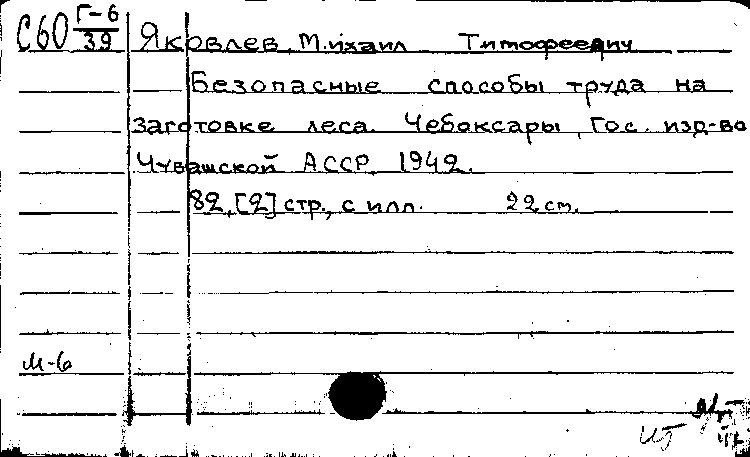 С60 Г-6/39 Яковлев, Михаил Тимофеевич
Безопасные способы труда на
заготовке леса. Чебоксары, Гос. изд-во
Чувашской АССР, 1942.
82, [2] стр., с илл. 22 см.
М-6